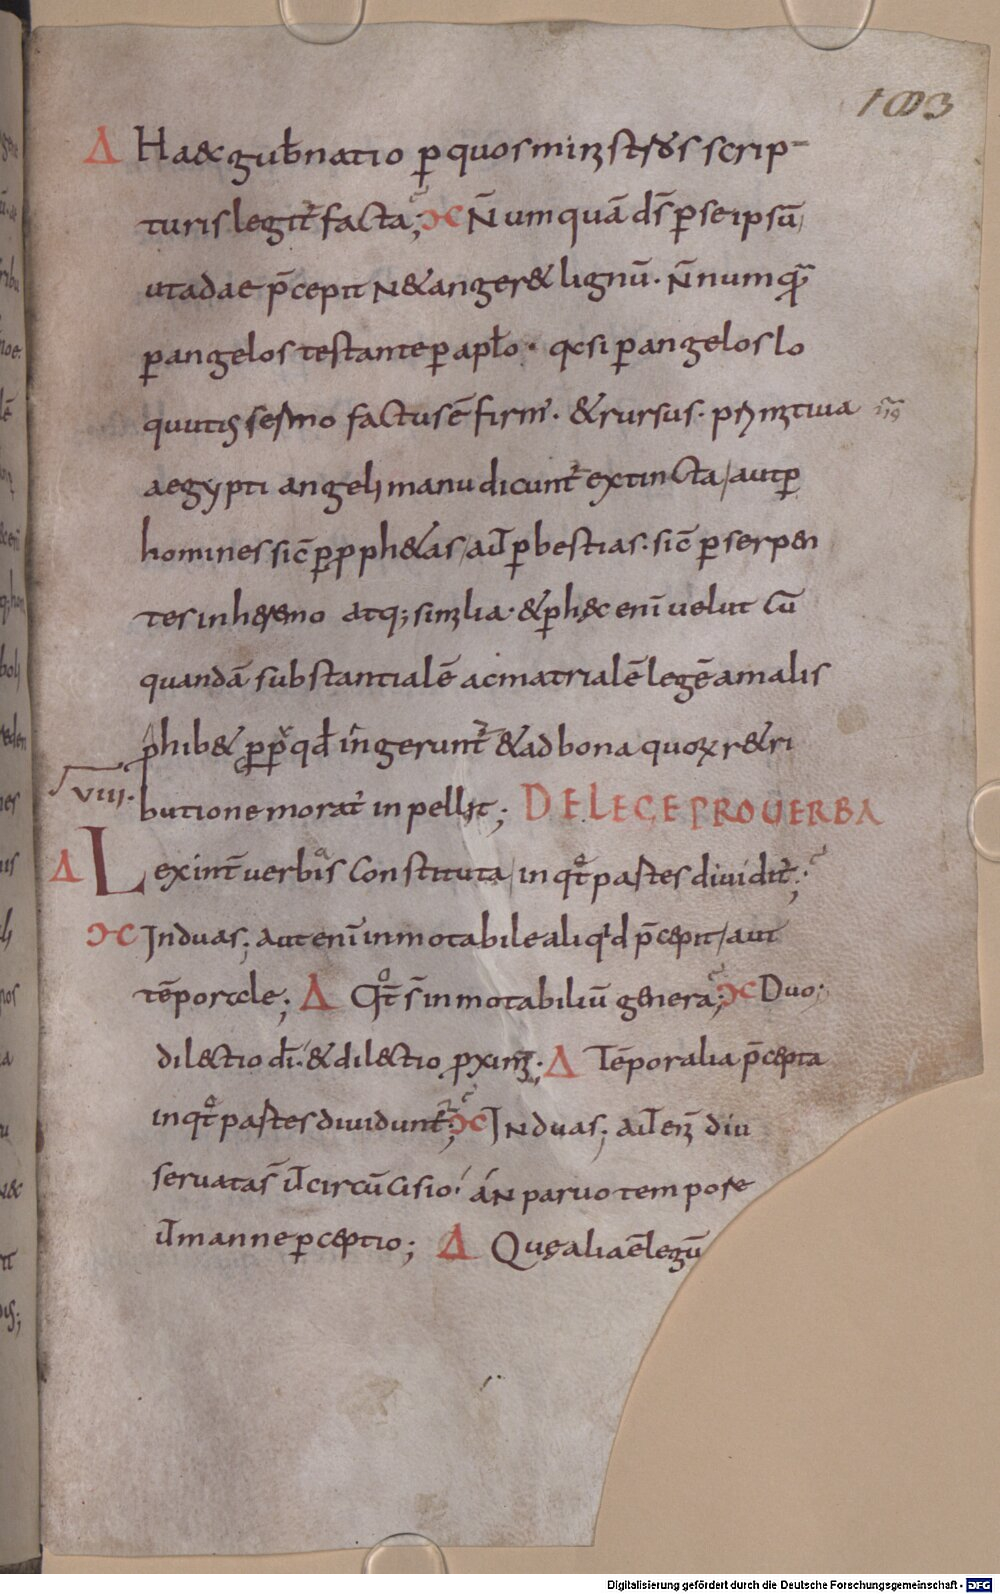 103
Δ Haec gub̄natio p̱ quos ministros scrip-
turis legit̄ facta; ϽC N̄umquā ds̄ p̱ se ipsū,
ut adae p̄cepit Ne tangeret lignū. N̄ numquā
p̱ angelos testante p̱ aplo. qd si p̱ angelos lo
quutus sermo factus ē firm. & rursus. primitiua
aegypti angeli manu dicunt̄ extincta, aut p̱
homines sic̄ p̱ pphetas, aut p̱ bestias. sic̄ p̱ serpen
tes in heremo atq; similia. & p̱ hęc enī uelut cū
quandā substantialē ac matrialē legē a malis
phibet pp̱ qd ingerunt̄ & ad bona quoꝝ retri
butione morat̄ inpellit; DE LEGE PRO UERBA
VIII.
Δ Lex int̄ uerbis constituta, in qt̊ partes diuidit̄;
ϽC In duas; aut enī inmotabile aliqd p̄cepit, aut
tēporale; Δ Qt̊ s̄ inmotabiliū genera; ϽC Duo;
dilectio dī. & dilectio pximi. Δ Tēporalia p̄cepta
in qt̊ partes diuidunt̄; ϽC In duas; aut eni diu
seruatas ut circūcisio, an paruo tempore
ut manne p̱ceptio; Δ Quę alia ē legū
Digitalisierung gefördert durch die Deutsche Forschungsgemeinschaft - DFG